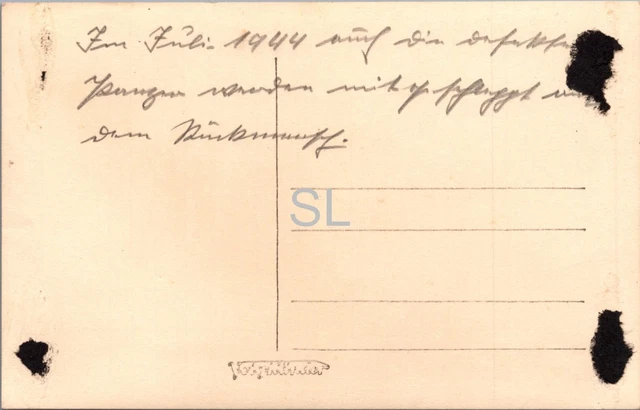 Im Juli 1944 auch die defekten
Panzer werden mitgeschleppt auf
dem Rückmarsch.
SL